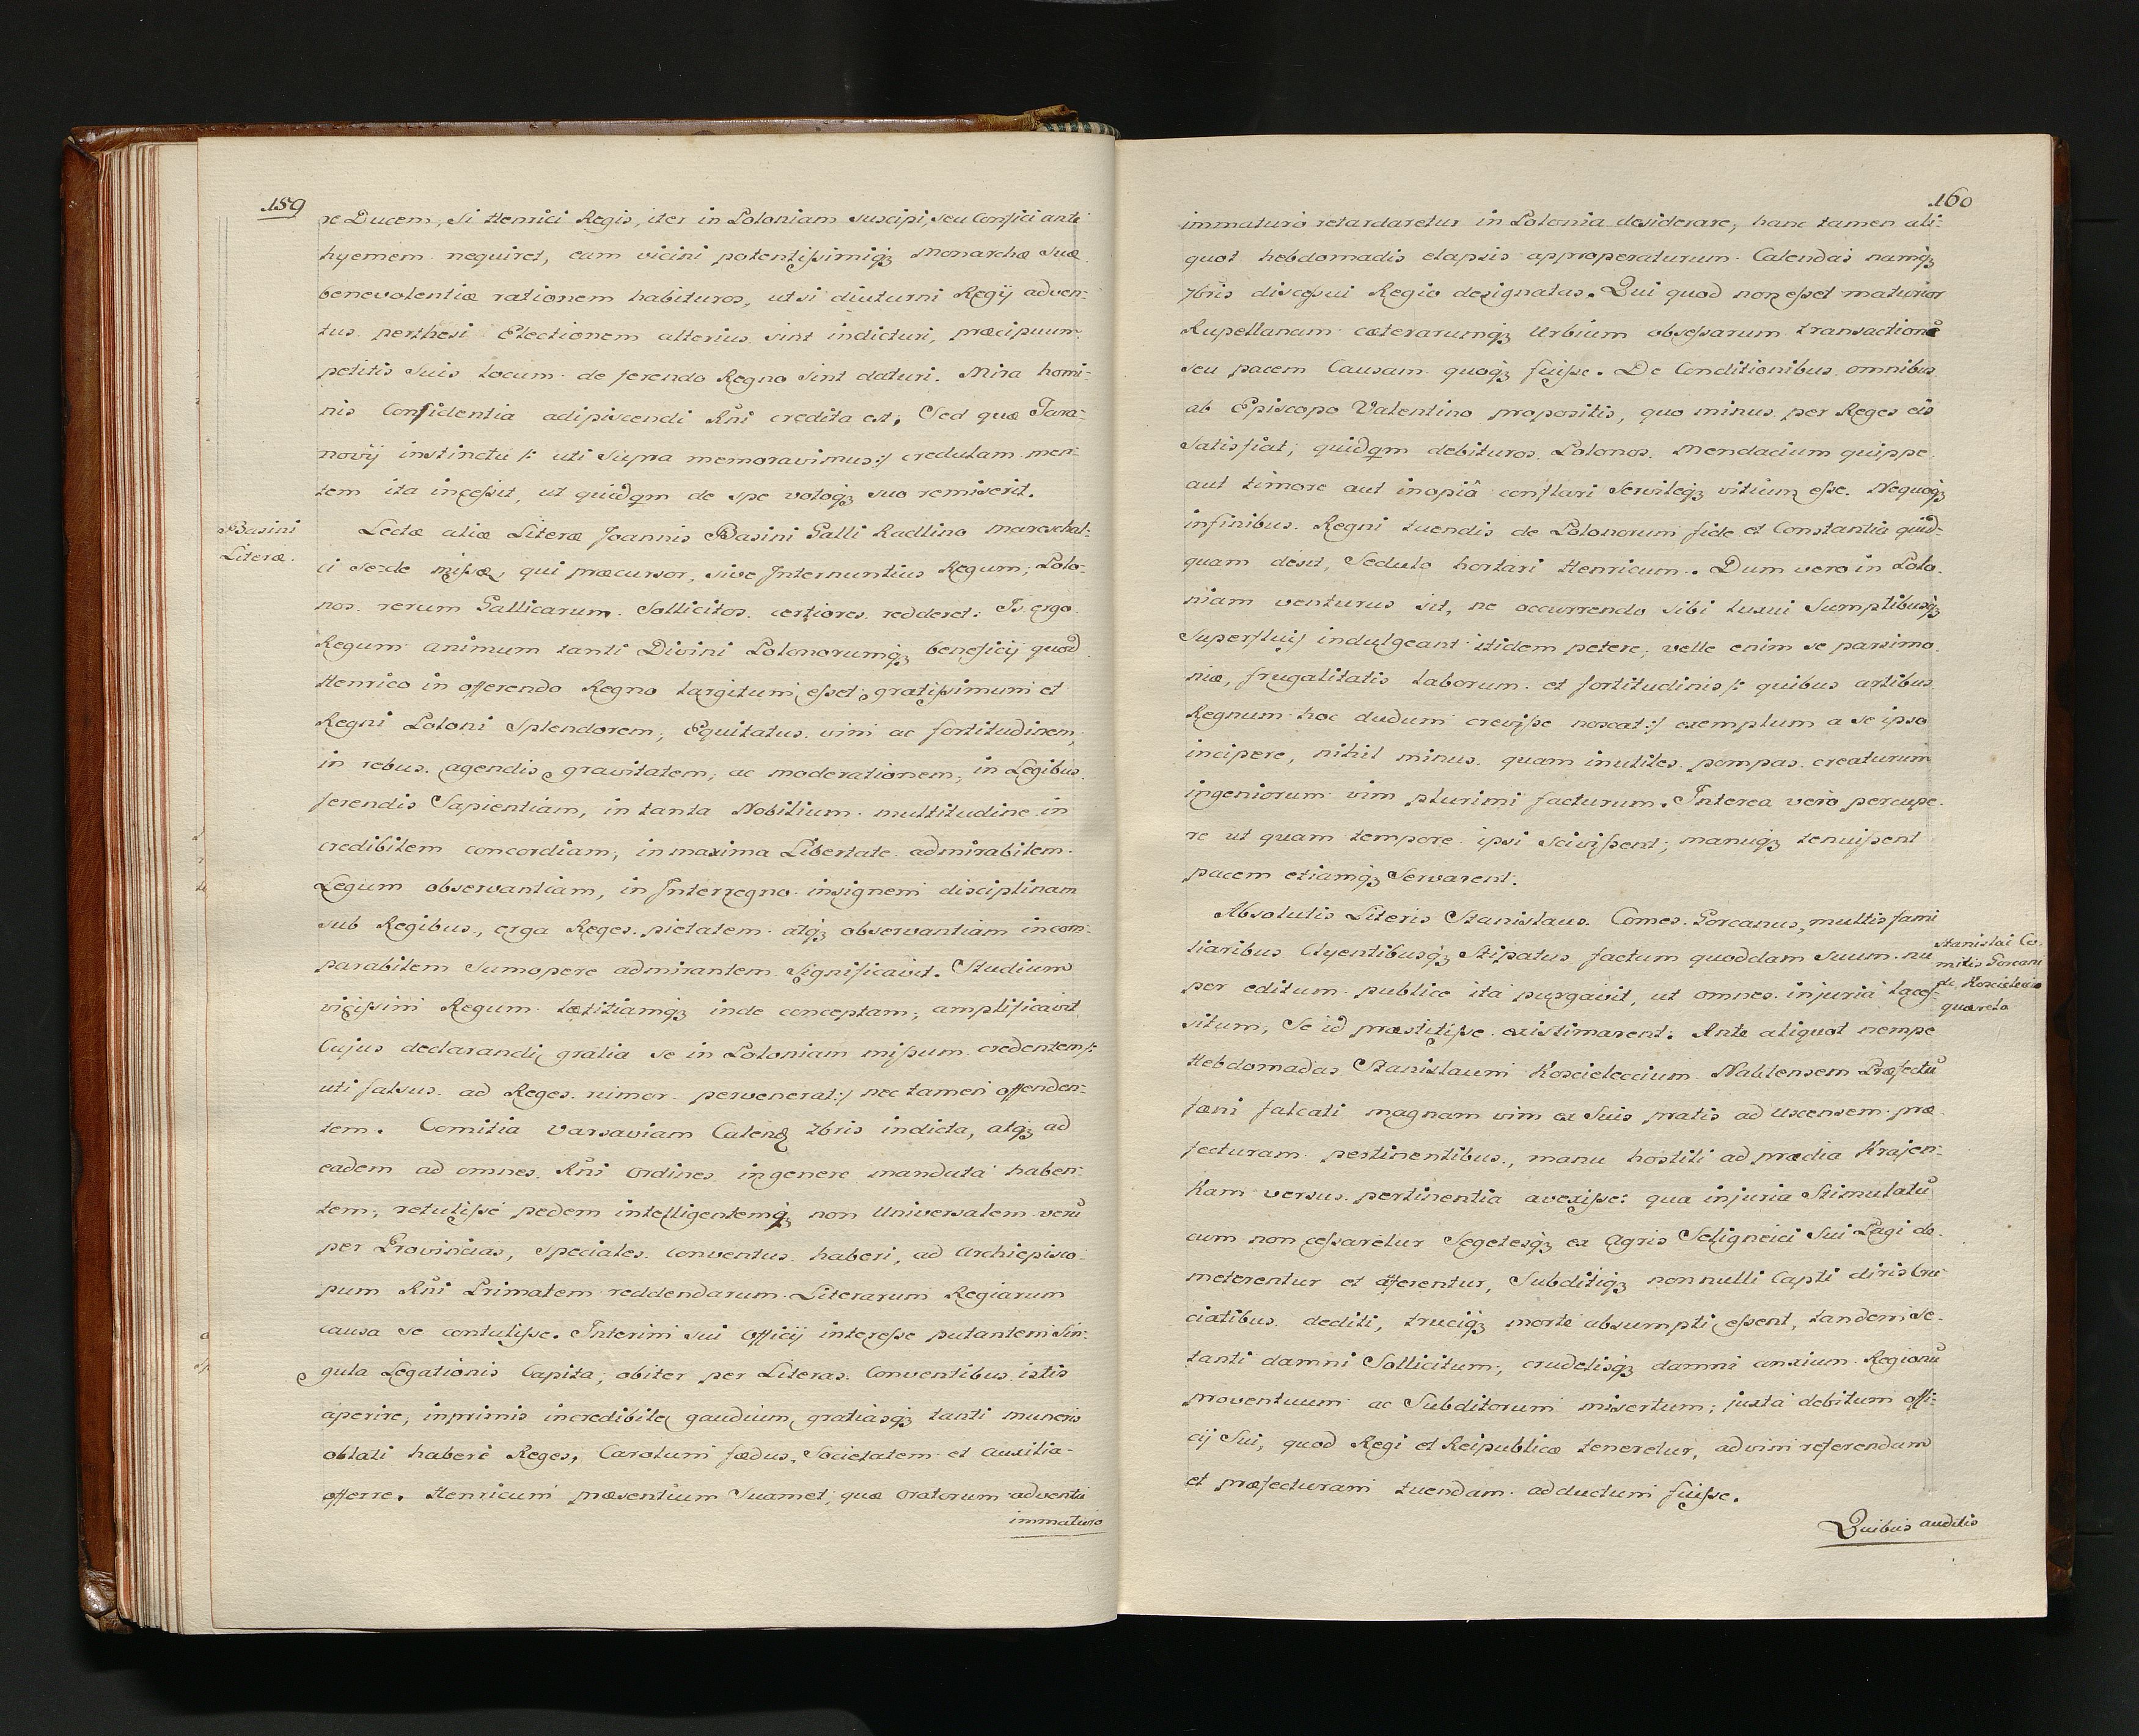 159
re Ducem, si Henrici Regis, iter in Poloniam suscipi, seu Confici ante
hyemem nequiret, eam vicini potentissimiqꝫ Monarchæ suæ
benevolentiæ rationem habituros, ut si diuturni Regij adven-
tus pertæsi Electionem alterius sint indicturi, præcipuum
petitis suis locum de ferendo Regno sint daturi. Mira homi-
nis Confidentia adipiscendi Rñi credita est, Sed quæ Tara-
novij instinctu /: uti supra memoravimus :/ credulam men-
tem ita incessit, ut quidqm de spe votoqꝫ suo remiserit.
Basini
Literæ.
Lectæ aliæ Literæ Joannis Basini Galli Radlino Mareschal-
ci se-de missæ, qui præcursor, sive Internuntius Regum, Polo-
nos rerum Gallicarum Sollicitos certiores redderet: Is ergo
Regum animum tanti Divini Polonorumqꝫ beneficij quod
Henrico in offerendo Regno largitum esset, gratissimum et
Regni Poloni Splendorem, Equitatus vim ac fortitudinem,
in rebus agendis gravitatem, ac moderationem, in Legibus
ferendis Sapientiam, in tanta Nobilium multitudine in
credibilem concordiam, in maxima Libertate admirabilem
Legum observantiam, in Interregno insignem disciplinam
sub Regibus, erga Reges pietatem atqꝫ observantiam incom-
parabilem sumopere admirantem Significavit. Studium
vicissim Regum lætitiamqꝫ inde conceptam, amplificavit
Cujus declarandi gratia se in Poloniam missum credentem /:
uti falsus ad Reges rumor pervenerat :/ nec tamen offenden-
tem. Comitia Varsaviam Calend 7bris indicta, atqꝫ ad
eadem ad omnes Rñi Ordines in genere mandata haben-
tem, retulisse pedem intelligentemqꝫ non Universalem verũ
per Provincias, speciales conventus haberi, ad Archiepisco-
pum Rñi Primatem reddendarum Literarum Regiarum
causa se contulisse. Interim sui Officij interesse putantem Sin-
gula Legationis Capita, obiter per Literas Conventibus istis
aperire, inprimis incredibile gaudium gratiasqꝫ tanti muneris
oblati habere Reges, Carolum fœdus, Societatem et Auxilia
offerre. Henricum præsentium Suamet, quæ Oratorum adventu
immaturo
160
immaturo retardaretur in Polonia desiderare, hanc tamen ali-
quot hebdomadis elapsis approperaturum. Calendas namqꝫ
7bris discessui Regio designatas. Qui quod non esset maturior
Rupellanam cæterarumqꝫ Urbium obsessarum transactionẽ
seu pacem Causam quoqꝫ fuisse. De Conditionibus omnibus
ab Episcopo Valentino propositis, quo minus per Reges eis
Satisfiat, quidqm debituros Polonos. Mendacium quippe
aut timore aut inopiâ conflari Servileqꝫ vitium esse. Nequoqꝫ
in finibus Regni tuendis de Polonorum fide et Constantia quid-
quam desit, Sedulo hortari Henricum. Dum vero in Polo-
niam venturus sit, ne occurrendo sibi luxui Sumptibusqꝫ
Superfluis indulgeant itidem petere, velle enim se parsimo
niæ, frugalitatis laborum et fortitudinis /: quibus artibus
Regnum hoc dudum crevisse noscat :/ exemplum a se ipso
incipere, nihil minus quam inutiles pompas creaturum
ingeniorum vim plurimi facturum. Interea vero percupe-
re ut quam tempore ipsi scivissent, manuqꝫ tenuissent
pacem etiamqꝫ Servarent.
Absolutis Literis Stanislaus Comes Gorcanus, multis fami
liaribus Clyentibusqꝫ Stipatus factum quoddam suum nu
per editum publice ita purgavit, ut omnes injuria laces-
situm, Se id præstitisse existimarent. Ante aliquot nempe
Hebdomadas Stanislaum Koscieleccium Naklensem Præfectũ
fæni falcati magnam vim ex Suis pratis ad Uscensem præ
fecturam pertinentibus, manu hostili ad prædia Krajen-
kam versus pertinentia avexisse: qua injuria Stimulatũ
cum non cessaretur Segetesqꝫ ex Agris Seligneici Sui Pagi de-
meterentur et afferentur, Subditiqꝫ nonnulli Capti diris Cru
ciatibus dediti, truciqꝫ morte absumpti essent, tandem se
tanti damni Sollicitum, crudelisqꝫ damni anxium Regionũ
proventuum ac Subditorum misertum, juxta debitum offi-
cij Sui, quod Regi et Reipublicæ teneretur, ad vim referendam
et præfecturam tuendam adductum fuisse.
Stanislai Co-
mitis Gorcani
de Koscielecio
quærela
Quibus auditis